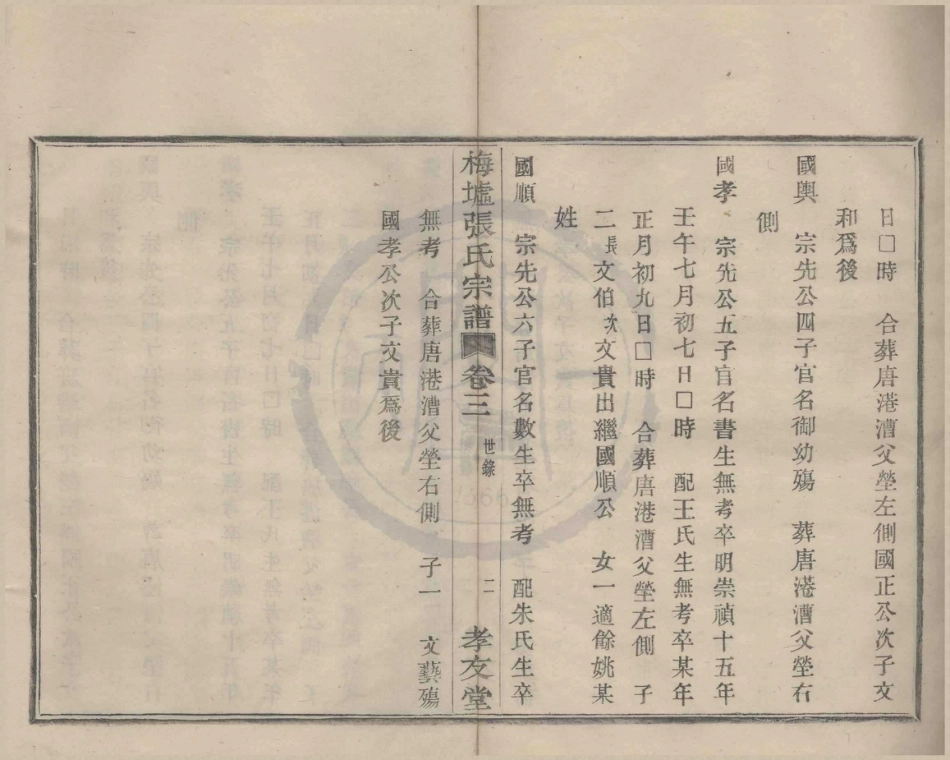 日□時　合葬唐港漕父塋左側國正公次子文
和爲後
國興　宗先公四子官名御幼殤　葬唐港漕父塋右
側
國孝　宗先公五子官名書生無考卒明崇禎十五年
壬午七月初七日□時　配王氏生無考卒某年
正月初九日□時　合葬唐港漕父塋左側　子
二長文伯次文貴出繼國順公　女一適餘姚某
姓
國順　宗先公六子官名數生卒無考　配朱氏生卒
梅墟張氏宗譜　卷三　世錄　二　孝友堂
無考　合葬唐港漕父塋右側　子一　文藝殤
國孝公次子文貴爲後